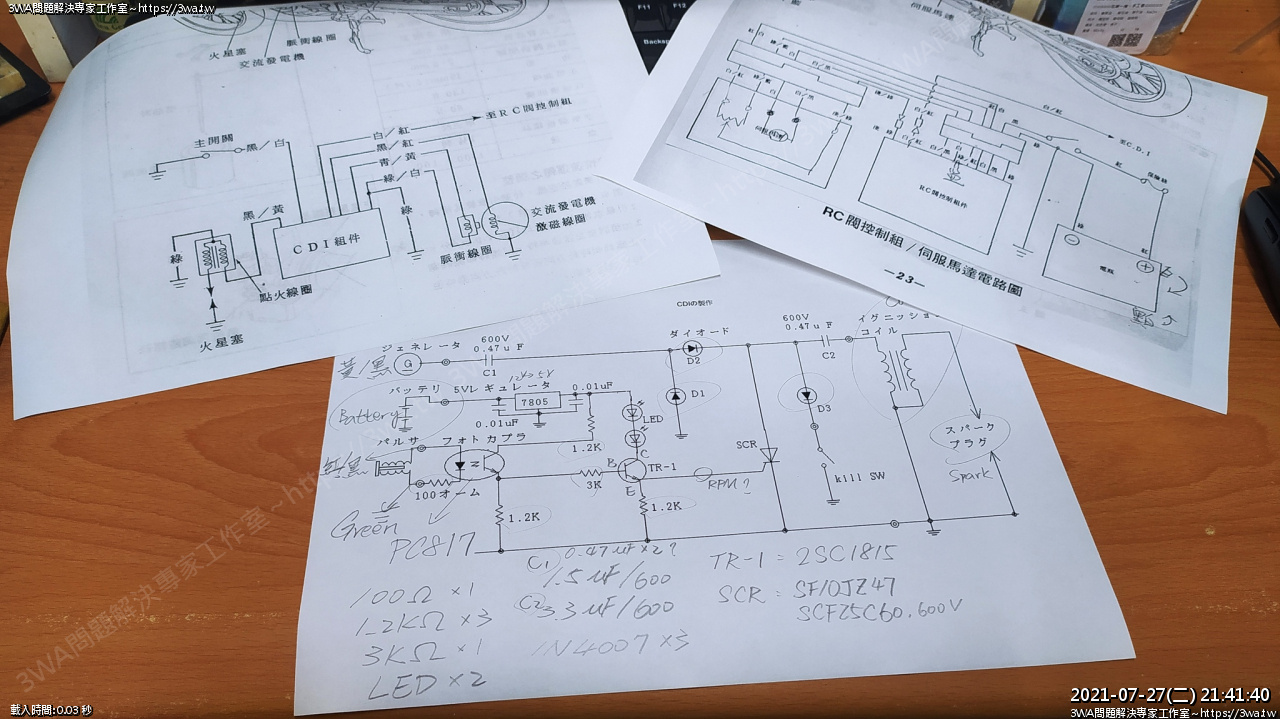 3WA問題解決專家工作室~https://3wa.tw
火星塞
脈衝線圈
交流發電機
主開關
黑/白
白/紅
至RC閥控制組
黑/紅
青/黃
綠/白
黑/黃
綠
綠
CDI組件
點火線圈
火星塞
脈衝線圈
交流發電機
激磁線圈
F11
F12
Backsp
伺服馬達
紅
白
綠/藍
白/黑
白/紅
白/紅
綠/藍
白
白/黑
至C.D.I
紅
黑
綠
RC閥控制組件
綠
紅
電瓶
RC閥控制組/伺服馬達電路圖
-23-
CDIの製作
ジェネレータ
600V
0.47uF
C1
G
黃/黑
ダイオード
D2
600V
0.47uF
C2
イグニッション
コイル
バッテリ
5Vレギュレータ
12V→5V
7805
0.01uF
0.01uF
Battery
LED
D1
D3
スパーク
プラグ
Spark
パルサ
フォトカプラ
1.2K
紅/黑
100オーム
B
C
E
TR-1
3K
SCR
RPM?
kill SW
1.2K
1.2K
Green
PC817
100Ω ×1
1.2KΩ ×3
3KΩ ×1
LED ×2
C1) 0.47uF×2?
1.5uF/600
C2 3.3uF/600
1N4007×3
TR-1 = 2SC1815
SCR = SF10JZ47
SCF25C60.600V
3WA問題解決專家工作室~https://3wa.tw
載入時間:0.03 秒
2021-07-27(二) 21:41:40
3WA問題解決專家工作室~https://3wa.tw